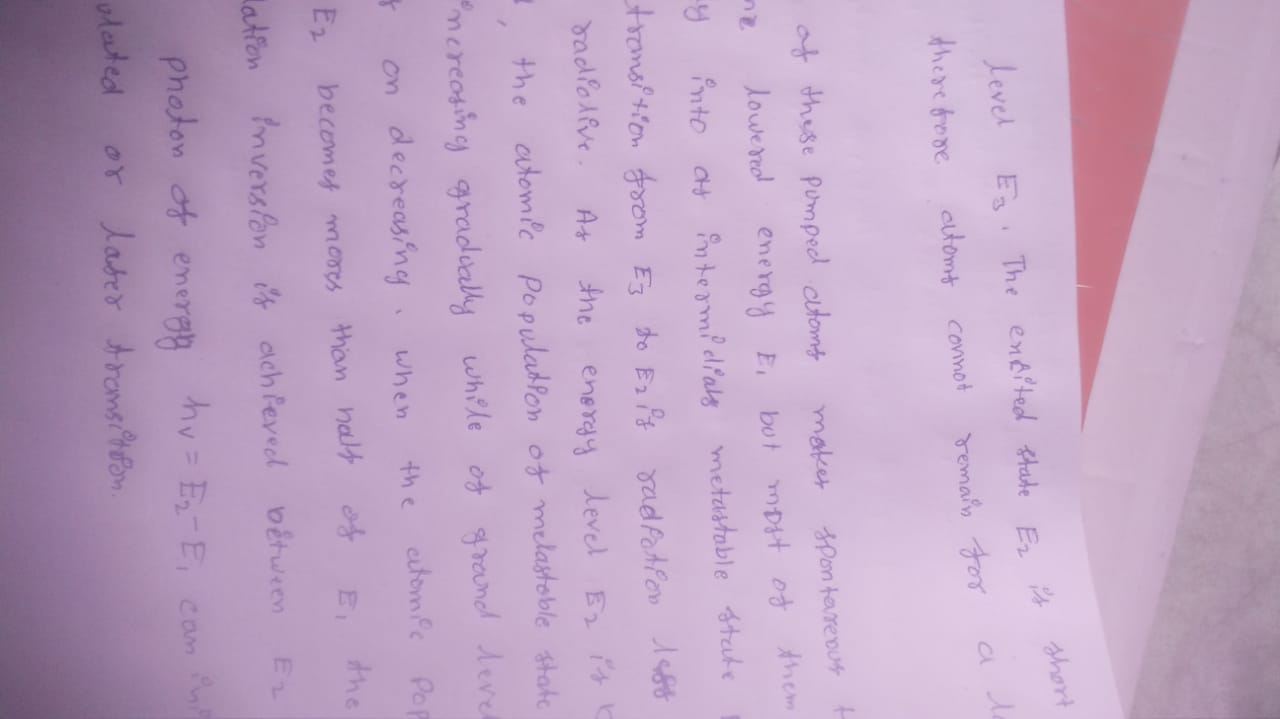 level E3. The encited state E2 is short
therefore atoms connot remain for a
of these pumped atoms makes spontaneous
lowered energy E1 but most of them
into as intermidiate metastable state
transition from E3 to E2 is radiation less
radiative. As the energy level E2 is
, the atomic population of metastable state
increasing gradually while of ground level
on decreasing. when the atomic pop
E2 becomes mores than half of E1 the
lation inversion is achieved between E2
photon of energy hv = E2 - E1 can
ulated or laser transition.